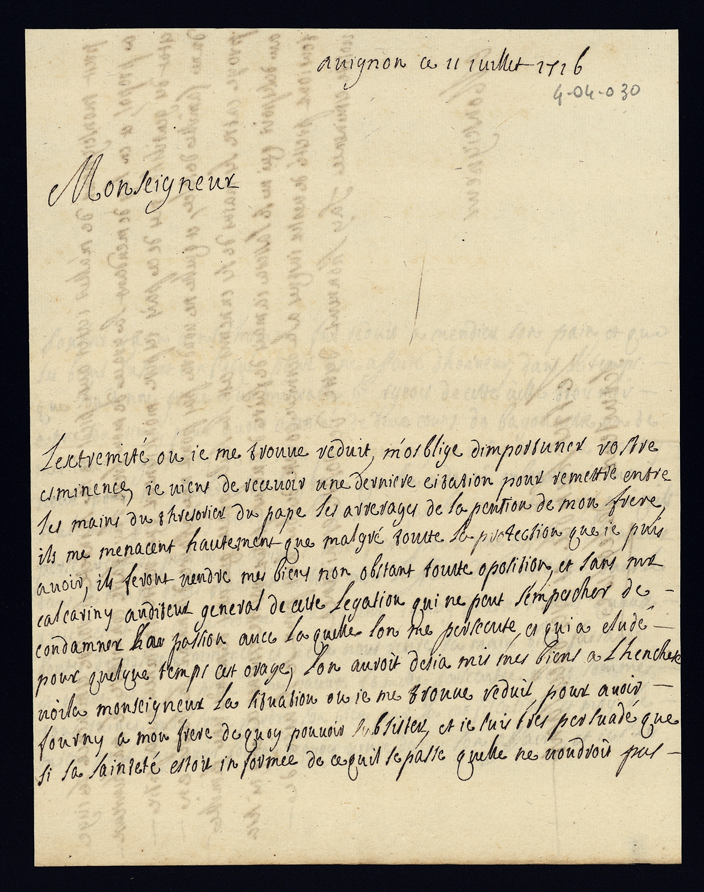 avignon ce 11 iuillet 1716
4-04-030
Monseigneur
Lextremité ou ie me trouue reduit, m'osblige dimportuner vostre
esminence, ie viens de receuoir une derniere citation pour remettre entre
les mains du thresorier du pape les arrerages de la pention de mon frere,
ils me menacent hautement que malgré toutte la protection que ie puis
auoir, ils feront vendre mes biens non obstant toutte oposition, et sans mr
calcariny auditeur general de cette legation qui ne peut sempescher de
condamner la passion auec laquelle lon me persecute, et qui a eludé
pour quelque temps cet orage, lon auroit desia mis mes biens a Lenchere
voila monseigneur la situation ou ie me trouue reduit pour auoir
fourny a mon frere de quoy pouuoir subsister, et ie suis tres persuadé que
si sa sainteté estoit informee de ce quil se passe quelle ne voudroit pas